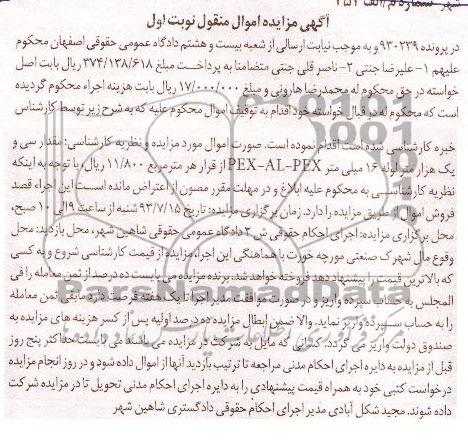 شهر شماره م/الف ۲۵۲
آگهی مزایده اموال منقول نوبت اول
در پرونده ۹۳۰۲۳۹ و به موجب نیابت ارسالی از شعبه بیست و هشتم دادگاه عمومی حقوقی اصفهان محکوم
علیهم ۱- علیرضا جنتی ۲- ناصر قلی جنتی متضامنا به پرداخت مبلغ ۳۷۴/۱۳۸/۶۱۸ ریال بابت اصل
خواسته در حق محکوم له محمدرضا هارونی و مبلغ ۱۷/۰۰۰/۰۰۰ ریال بابت هزینه اجراء محکوم گردیده
است که محکوم له در قبال خواسته خود اقدام به توقیف اموال محکوم علیه که به شرح زیر توسط کارشناس
خبره کارشناسی شده است اقدام نموده است. صورت اموال مورد مزایده و نظریه کارشناسی: مقدار سی و
یک هزار متر لوله ۱۶ میلی متر PEX-AL-PEX از قرار هر متر مربع ۱۱/۸۰۰ ریال، با توجه به اینکه
نظریه کارشناسی به محکوم علیه ابلاغ و در مهلت مقرر مصون از اعتراض مانده است این اجراء قصد
فروش اموال از طریق مزایده را دارد. زمان برگزاری مزایده: تاریخ ۹۳/۷/۱۵ شنبه از ساعت ۹ الی ۱۰ صبح،
محل برگزاری مزایده: اجرای احکام حقوقی ش ۲ دادگاه عمومی حقوقی شاهین شهر، محل بازدید: محل
وقوع مال شهرک صنعتی مورچه خورت با هماهنگی این اجراء مزایده از قیمت کارشناسی شروع و به کسی
که بالاترین قیمت را پیشنهاد دهد فروخته خواهد شد. برنده مزایده می بایست ده درصد از ثمن معامله را فی
المجلس به حساب سپرده واریز و در صورت موافقت مدیر اجرا تا یک هفته فرصت دارد مابقی ثمن معامله
را به حساب سپرده واریز نماید. والا ضمن ابطال مزایده ده درصد اولیه پس از کسر هزینه های مزایده به
صندوق دولت واریز می گردد. کسانی که مایل به شرکت در مزایده می باشند می بایست حداکثر پنج روز
قبل از مزایده به دایره اجرای احکام مدنی مراجعه تا ترتیب بازدید آنها از اموال داده شود و در روز انجام مزایده
درخواست کتبی خود به همراه قیمت پیشنهادی را به دایره اجرای احکام مدنی تحویل تا در مزایده شرکت
داده شوند. مجید شکل آبادی مدیر اجرای احکام حقوقی دادگستری شاهین شهر
ParsNamadData